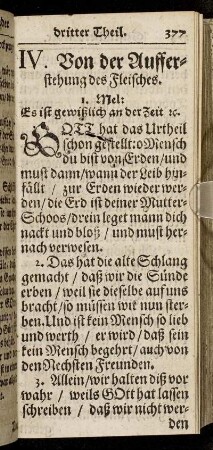 dritter Theil. 377
IV. Von der Auffer-
stehung des Fleisches.
1. Mel:
Es ist gewißlich an der Zeit ꝛc.
GOTT hat das Urtheil
schon gestellt: o Mensch
du bist von Erden / und
must dann / wann der Leib hin-
fällt / zur Erden wieder wer-
den / die Erd ist deiner Mutter-
Schoos / drein leget männ dich
nackt und bloß / und must her-
nach verwesen.
2. Das hat die alte Schlang
gemacht / daß wir die Sünde
erben / weil sie dieselbe auf uns
bracht / so müssen wir nun ster-
ben. Und ist kein Mensch so lieb
und werth / er wird / daß sein
kein Mensch begehrt / auch von
den Nechsten Freunden.
3. Allein / wir halten diß vor
wahr / weils GOtt hat lassen
schreiben / daß wir nicht wer-
den